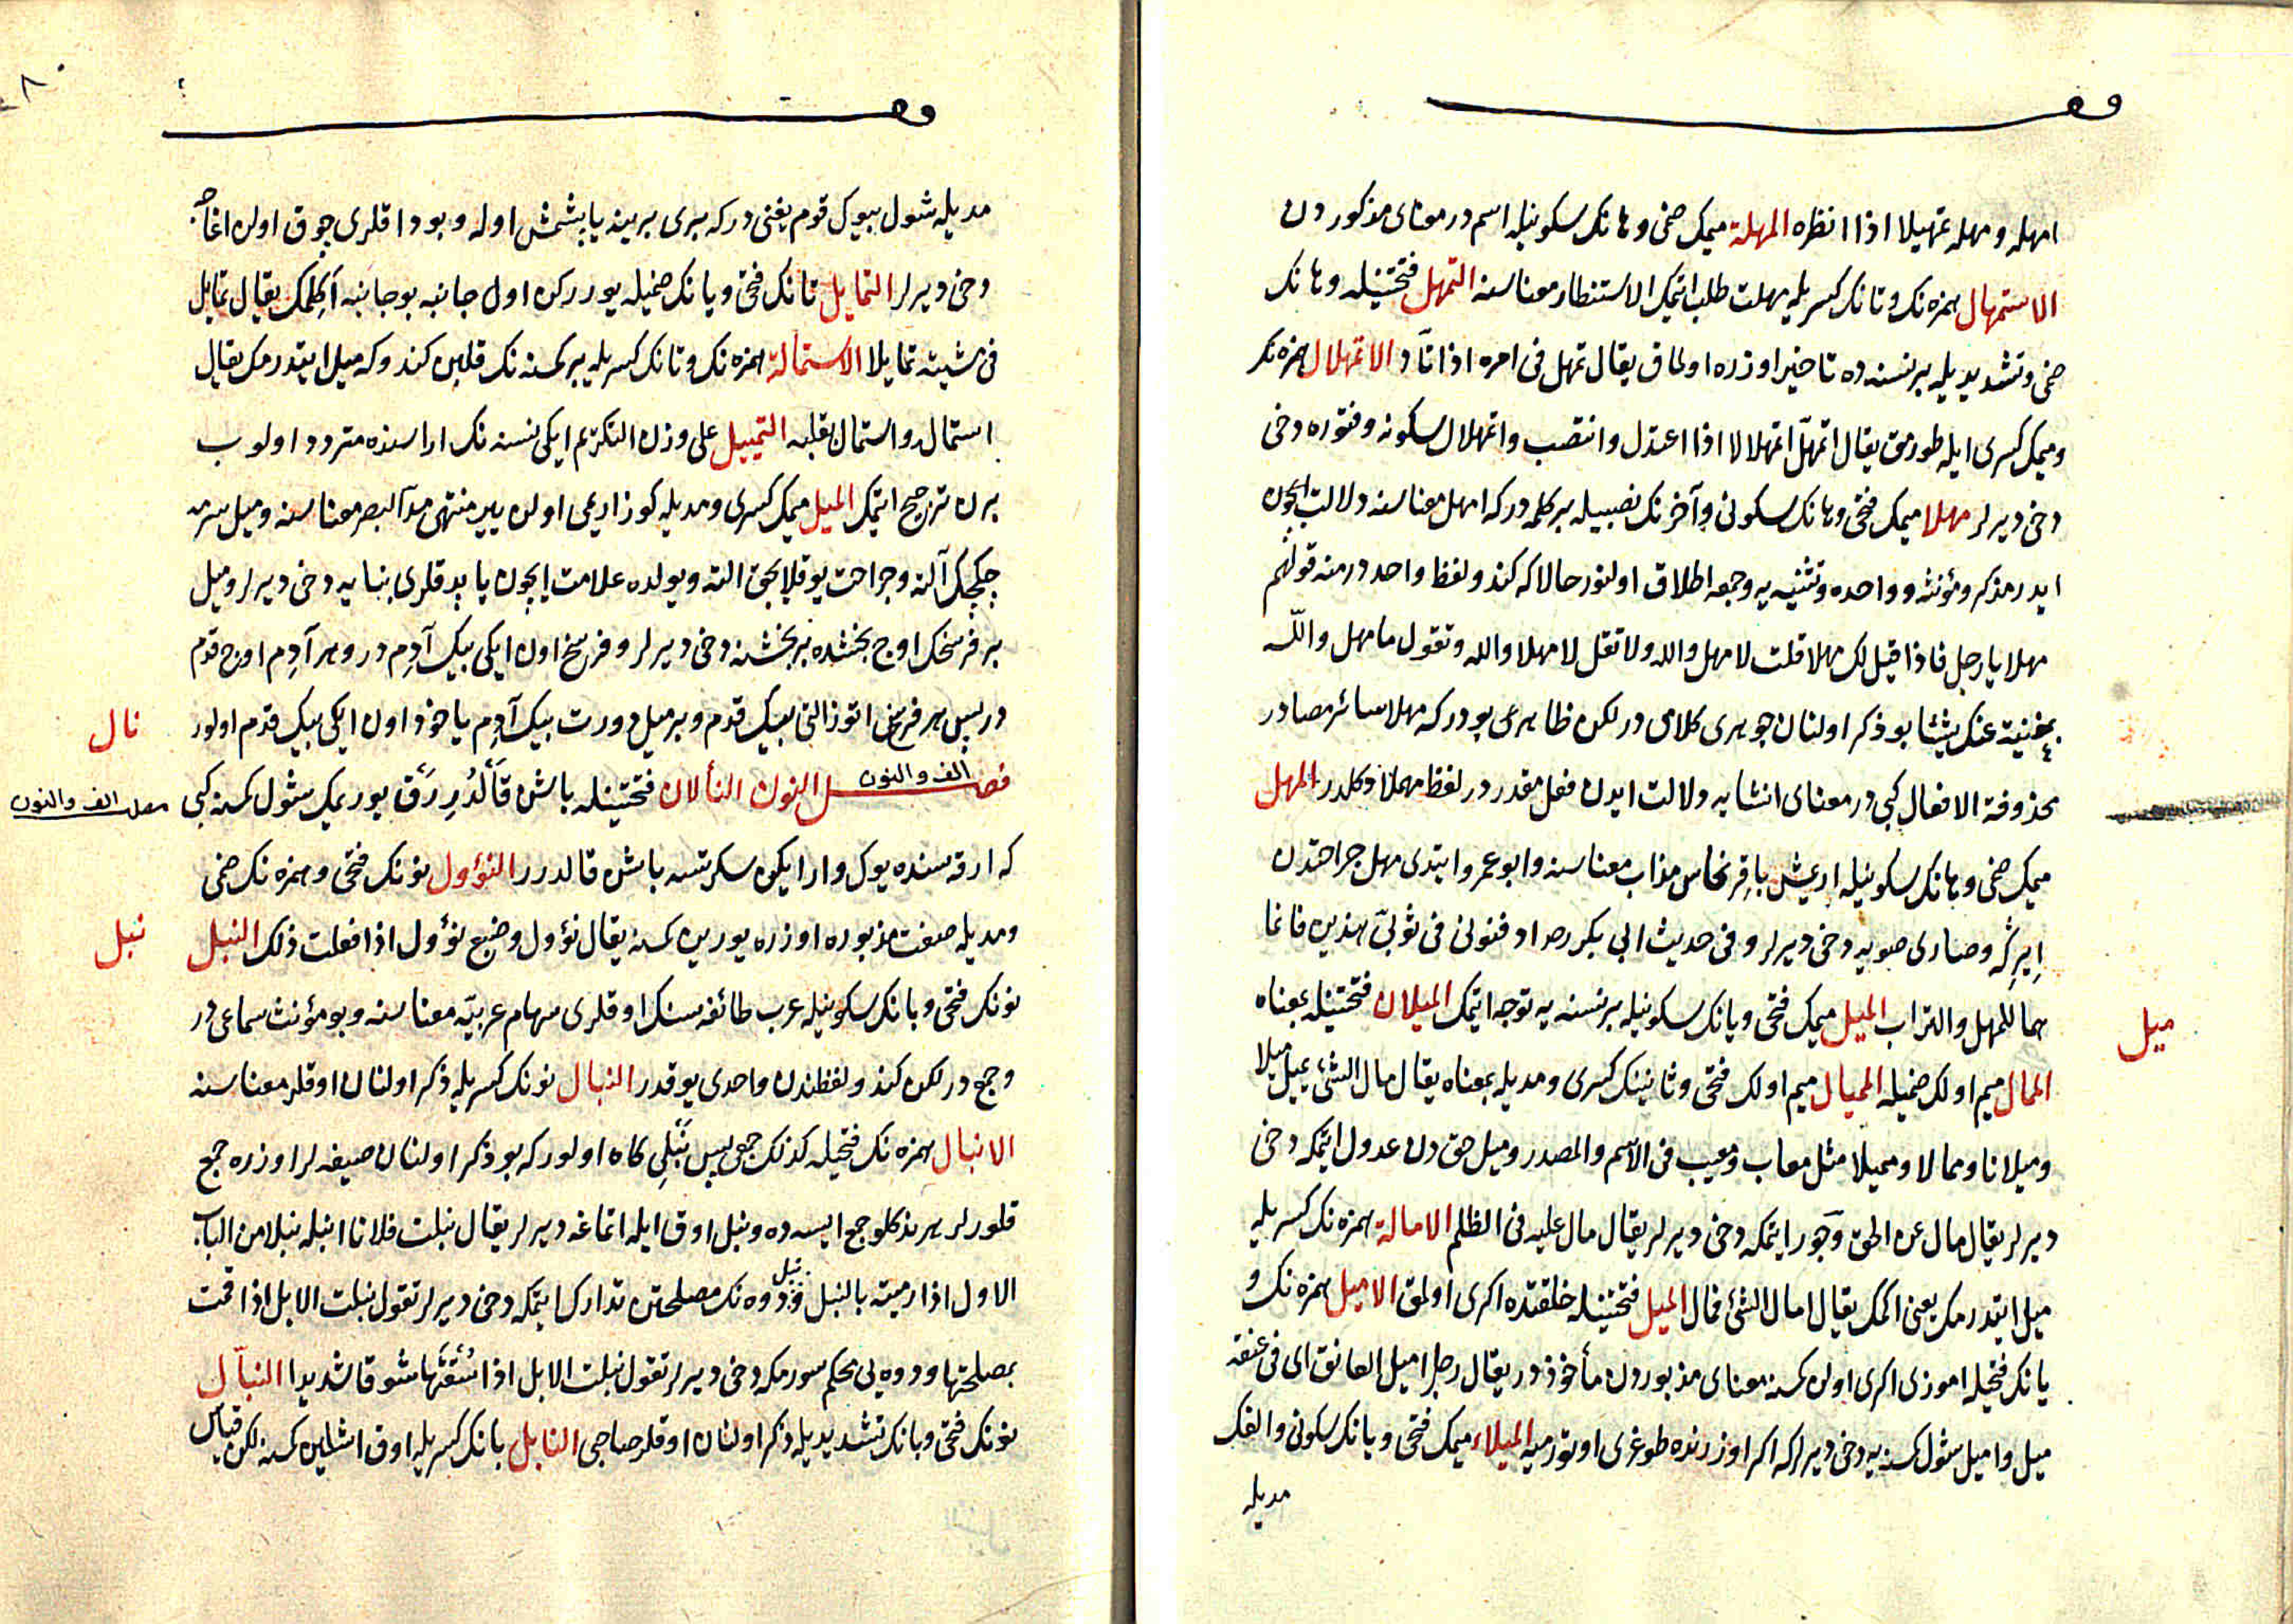 امهله ومهله تمهيلا اذا انظره المهلة ميمك ضمی وهانك سكونيله اسم در معنای مذكوردن
الاستمهال همزه نك وتانك كسريله مهلت طلب اتمك الاستنظار معناسنه التمهل فتحتينله وهانك
ضمی وتشديديله بر نسنه ده تاخير اوزره اولماق يقال تمهل فی امره اذا تأد الاتمهلال همزه نك
وميمك كسری ايله طورمق يقال اتمهلّ اتمهلالا اذا اعتدل وانتصب واتمهلال سكونه وفتوره دخی
دخی ديرلر مهلا ميمك فتحی وهانك سكونی وآخرنك نصبيله بر كلمه در كه امهل معناسنه دلالت ايچون
ايدر مذكر ومؤنثه وواحده وتثنيه يه وجمعه اطلاق اولنور حالا كه كندو لفظ واحد در منه قولهم
مهلا يا رجل فاذا قيل لك مهلا قلت لا مهل والله ولا تقل لا مهلا والله وتقول ما مهل والله
بمغنية عنك شيئا بو ذكر اولنان جوهری كلامی در لكن ظاهری بودر كه مهلا سائر مصادر
محذوفة الافعال كبی در معنای انشايه دلالت ايدن فعل مقدر در لفظ مهلا دكلدر المهل
ميمك ضمی وهانك سكونيله اريمش باقر نحاس مذاب معناسنه وابو عمرو ايتدی مهل جراحتدن
ايرڭه وصاری صويه دخی ديرلر وفی حديث ابی بكر رضه ادفنونی فی ثوبیّ هذين فانما
هما للمهل والتراب الميل ميمك فتحی ويانك سكونيله بر نسنه يه توجه اتمك الميلان فتحتينله بمعناه
ميل
الممال ميم اولك ضميله المميل ميم اولك فتحی وثانينك كسری ومديله بمعناه يقال مال الشئ يميل ميلا
وميلانا وممالا ومميلا مثل معاب ومعيب فی الاسم والمصدر وميل حق دن عدول اتمكه دخی
ديرلر يقال مال عن الحق وجور اتمكه دخی ديرلر يقال مال عليه فی الظلم الامالة همزه نك كسريله
ميل ايتدرمك يعنی اكمك يقال امال الشئ فمال الميل فتحتينله خلقتده اكری اولمق الاميل همزه نك و
يانك فتحيله اموزی اكری اولن كمسنه معنای مذبوردن مأخوذ در يقال رجل اميل العاتق ای فی عنقه
ميل واميل شول كمسنه يه دخی ديرلر كه اكر اوزرنده طوغری اوتورميه الميلاء ميمك فتحی ويانك سكونی والفك
مديله
مديله شول بيوك قوم يغنی در كه بری برينه يابشمش اوله وبوداقلری چوق اولن اغاجه
دخی ديرلر التمايل تانك فتحی ويانك ضميله يوررکن اول جانبه بو جانبه اكلمك يقال تمايل
فی مشيته تمايلا الاستمالة همزه نك وتانك كسريله بر كمسنه نك قلبن كندوكه ميل ايتدرمك يقال
استماله واستمال بقلبه التمييل علی وزن التكريم ايكی نسنه نك اراسنده متردد اولوب
برن ترجيح اتمك الميل ميمك كسری ومديله كوز اريمی اولن يير منتهی مدّ البصر معناسنه وميل سرمه
چكجك آلته وجراحت يوقلايجق الته ويولده علامت ايچون ياپدقلری بنايه دخی ديرلر وميل
بر فرسخك اوچ بخشنده بر بخشنه دخی ديرلر وفرسخ اون ايكی بيك آدم در وهر آدم اوچ قدم
در پس هر فرسخ اتوز التی بيك قدم وبر ميل دورت بيك آدم ياخود اون ايكی بيك قدم اولور
نال
فصل النون الف والنون النألان فتحتينله باش قالدررق يوريمك شول كمسنه كبی
فصل الف والنون
كه ارقه سنده يوك وار ايكن سكرتسه باش قالدرر النؤول نونك فتحی وهمزه نك ضمی
ومديله صفت مذبوره اوزره يورين كمسنه يقال نؤول وضبع نؤول اذا فعلت ذلك النبل
نبل
نونك فتحی وبانك سكونيله عرب طائفه سنك اوقلری سهام عربيّه معناسنه وبو مؤنث سماعی در
وجمع در لكن كندو لفظندن واحدی يوقدر النبال نونك كسريله ذكر اولنان اوقلر معناسنه
الانبال همزه نك فتحيله كذلك جمعی پس نَبْلی كاه اولور كه بو ذكر اولنان صيغه لر اوزره جمع
قلورلر هر نه دكلو جمع ايسه ده ونبل اوق ايله اتماغه ديرلر يقال نبلت فلانا انبله نبلا من الباب
الاول اذا رميته بالنبل ونبل دوه نك مصلحتن تدارك اتمكه دخی ديرلر تقول نبلت الابل اذا قمت
بمصلحتها ودوه يی محكم سورمكه دخی ديرلر تقول نبلت الابل اذا سُقْتَها سوقا شديدا النبّال
نونك فتحی وبانك تشديديله ذكر اولنان اوقلر صاحبی النابل بانك كسريله اوق اشلين كمسنه لكن قياس